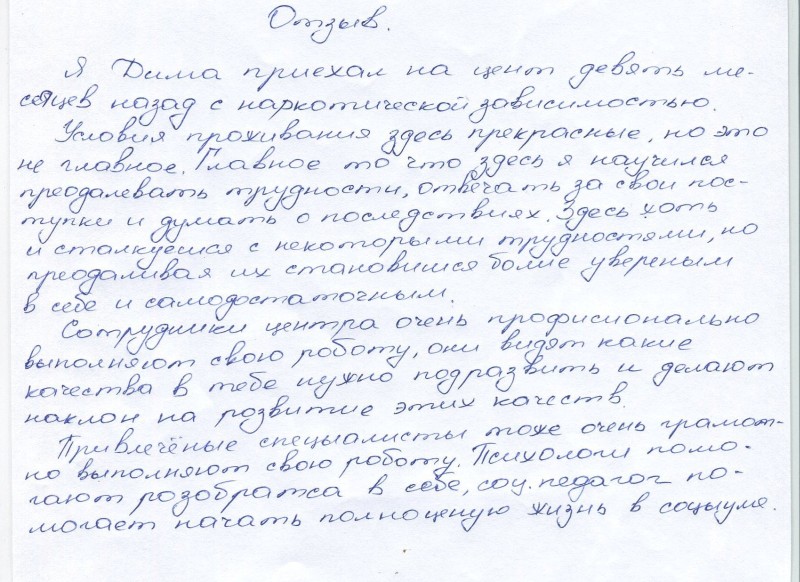 Отзыв.
Я Дима приехал на цент девять ме-
сяцев назад с наркотической зависимостью.
Условия проживания здесь прекрасные, но это
не главное. Главное то что здесь я научился
преодалевать трудности, отвечать за свои пос-
тупки и думать о последствиях. Здесь хоть
и сталкуешся с некоторыми трудностями, но
преодаливая их становишся болие увереным
в себе и самодостаточным.
Сотрудники центра очень професионально
выполняют свою роботу, они видят какие
качества в тебе нужно подразвить и делают
наклон на розвитие этих качеств.
Привлечёные специалисты тоже очень грамот-
но выполняют свою роботу. Психологи помо-
гают розобратса в себе, соц. педагог по-
могает начать полноценую жизнь в соцыуме.